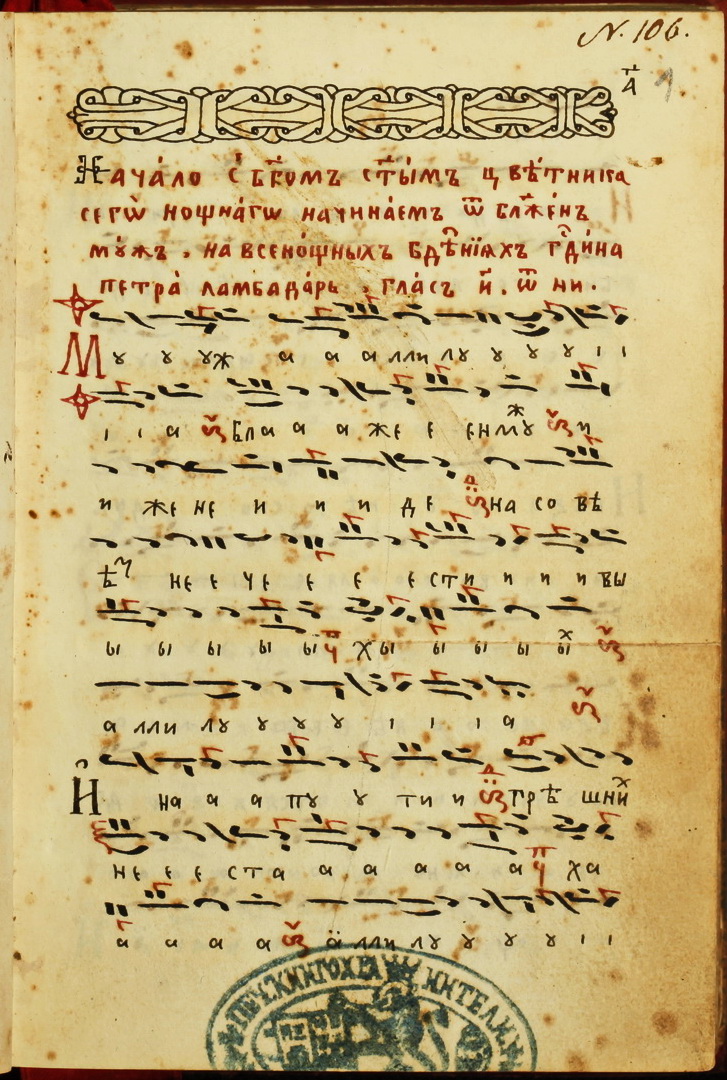 N. 106.
а҃
Нача́ло с̾ бг҃омъ ст҃ы́мъ цвѣ́тника
сегѡ̀ нощна́гѡ начина́емъ ѿ бл҃же́нъ
му́жъ , на всено́щныхъ бдѣ́нїяхъ гдⷭ҇и́на
петра̀ ламбада́рь , гла́съ и҃ . ѿ ни .
М у у уж а а а лли лу у у у і і
і і а бла а а а же е е енму ж и
и же не и и и и де на со вѣ
ѣ т не е че е е е ести и и и вы
ы ы ы ы ы хы ы ы ы ы х
а лли лу у у у і і і а
И на а а пу у ти и грѣ шни х
не е е ста а а а а а ха
а а а а а лли лу у у у і і